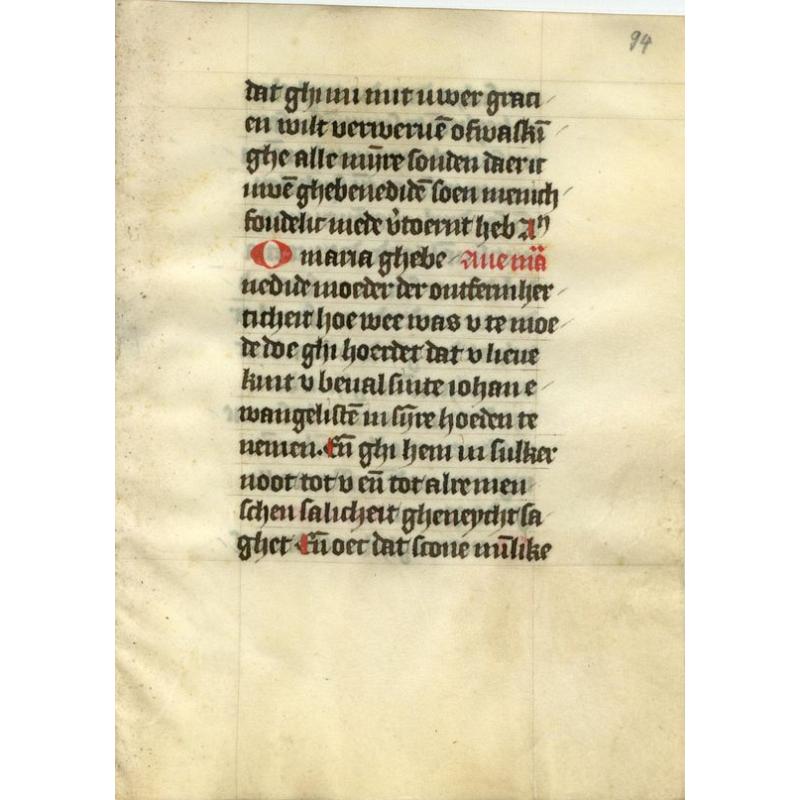 94
dat ghi mi mit uwer graci
en wilt verweruē ofwaskē
ghe alle mijnre sonden daer ic
uwē ghebenedidē soen menich
foudelic mede v̓toernt heb An̄
O maria ghebe Aue mā
nedide moeder der ontfermher
ticheit hoe wee was v te moe
de doe ghi hoerdet dat v lieue
kint v beual sinte iohan e
wangelistē in sijnre hoeden te
nemen. En̄ ghi hem in sulker
noot tot v en̄ tot alre men
schen salicheit gheneycht sa
ghet En̄ oec dat scone mīlike